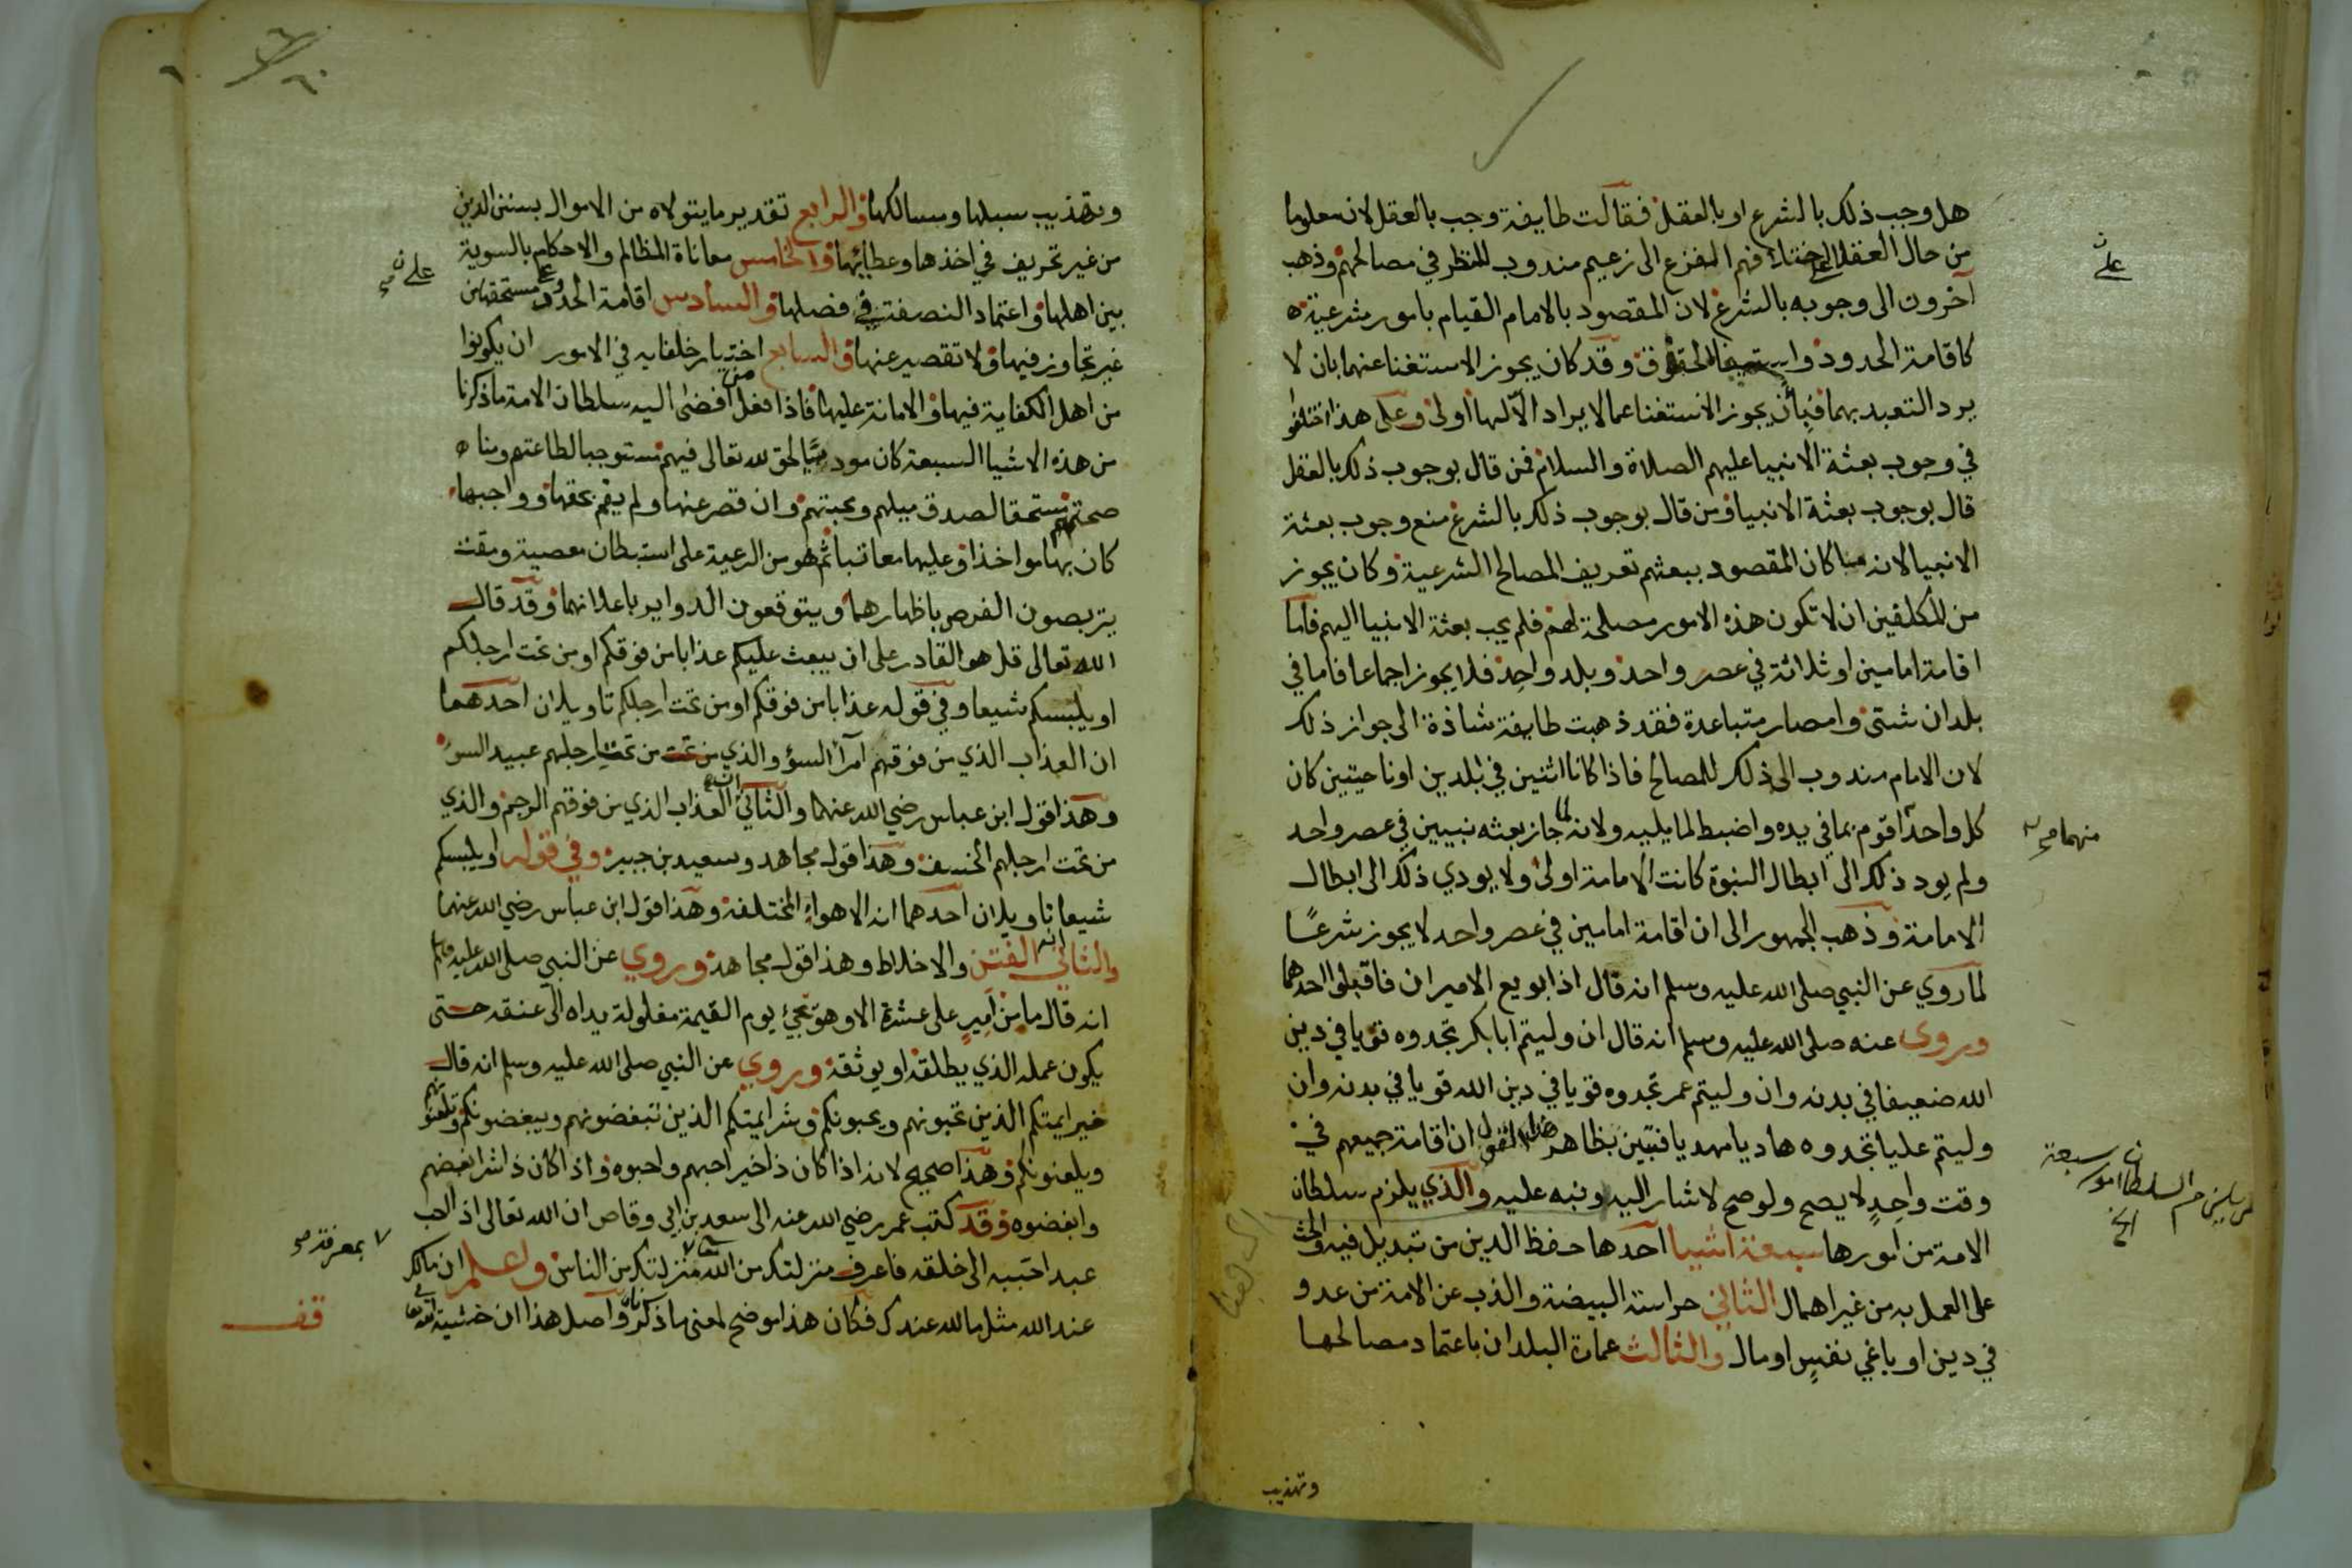 هل وجب ذلك بالشرع او بالعقل فقالت طايفة وجب بالعقل لان معلوما
من حال العقلا على اختلافهم الفزع الى زعيم مندوب للنظر في مصالحهم وذهب
آخرون الى وجوبه بالشرع لان المقصود بالامام القيام بامور شرعية
كاقامة الحدود واستيفا الحقوق وقد كان يجوز الاستغنا عنهما بان لا
يرد التعبد بهما فبأن يجوز الاستغنا عما لا يراد الا لها اولى وعلى هذا اختلفوا
في وجوب بعثة الانبيا عليهم الصلاة والسلام فمن قال بوجوب ذلك بالعقل
قال بوجوب بعثة الانبيا ومن قال بوجوب ذلك بالشرع منع وجوب بعثة
الانبيا لانه لما كان المقصود ببعثهم تعريف المصالح الشرعية وكان يجوز
من المكلفين ان لا تكون هذه الامور مصلحة لهم فلم يجب بعثة الانبيا اليهم فاما
اقامة امامين او ثلاثة في عصر واحد وبلد واحد فلا يجوز اجماعا فاما في
بلدان شتى وامصار متباعدة فقد ذهبت طايفة شاذة الى جواز ذلك
لان الامام مندوب الى ذلك للمصالح فاذا كانا اثنين في بلدين او ناحيتين كان
كل واحد اقوم بما في يده واضبط لما يليه ولانه لما جاز بعثه نبيين في عصر واحد
منهما صح
ولم يود ذلك الى ابطال النبوة كانت الامامة اولى ولا يودي ذلك الى ابطال
الامامة وذهب الجمهور الى ان اقامة امامين في عصر واحد لا يجوز شرعًا
لما روي عن النبي صلى الله عليه وسلم انه قال اذا بويع الاميران فاقتلوا احدهما
وروى عنه صلى الله عليه وسلم انه قال ان وليتم ابا بكر تجدوه قويا في دين
الله ضعيفا في بدنه وان وليتم عمر تجدوه قويا في دين الله قويا في بدنه وان
وليتم عليا تجدوه هاديا مهديا فتبين بظاهر هذا القول ان اقامة جميعهم في
وقت واحد لا يصح ولو صح لاشار اليه ونبه عليه والذي يلزم سلطان
الامة من امورها سبعة اشيا احدها حفظ الدين من تبديل فيه والحث
على العمل به من غير اهمال الثاني حراسة البيضة والذب عن الامة من عدو
في دين او باغي نفس او مال والثالث عمارة البلدان باعتماد مصالحها
وتهذيب
وتهذيب سبلها ومسالكها والرابع تقدير ما يتولاه من الاموال بسنن الدين
من غير تحريف في اخذها وعطائها والخامس معاناة المظالم والاحكام بالسوية
بين اهلها واعتماد النصفة في فصلها والسادس اقامة الحدود على مستحقها من
غير تجاوز فيها ولا تقصير عنها والسابع اختيار خلفايه في الامور ان يكونوا
من اهل الكفاية فيها والامانة عليها فاذا فعل من افضى اليه سلطان الامة ما ذكرنا
من هذه الاشيا السبعة كان موديًا لحق لله تعالى فيهم مستوجبا لطاعتهم ومنا
صحتهم مستحقا لصدق ميلهم ومحبتهم وان قصر عنها ولم يقم بحقها وواجبها
كان بها مواخذا وعليها معاتبا ثم هو من الرعية على استبطان معصية ومقت
يتربصون الفرص باظهارهما ويتوقعون الدواير باعلانهما وقد قال
الله تعالى قل هو القادر على ان يبعث عليكم عذابا من فوقكم او من تحت ارجلكم
او يلبسكم شيعا وفي قوله عذابا من فوقكم او من تحت ارجلكم تاويلان احدهما
ان العذاب الذي من فوقهم امرآ السؤ والذي من تحت من تحت ارجلهم عبيد السؤ
وهذا قول ابن عباس رضي الله عنهما والثاني ان العذاب الذي من فوقهم الرجم والذي
من تحت ارجلهم الخسف وهذا قول مجاهد وسعيد بن جبير وفي قوله او يلبسكم
شيعا تاويلان احدهما انه الاهواء المختلفة وهذا قول ابن عباس رضي الله عنهما
والثاني انه الفتن والاختلاط وهذا قول مجاهد وروي عن النبي صلى الله عليه وسلم
انه قال ما من امير على عشرة الا وهو يجئ يوم القيمة مغلولة يداه الى عنقه حتى
يكون عمله الذي يطلقه او يوثقه وروي عن النبي صلى الله عليه وسلم انه قال
خير ايمتكم الذين تحبونهم ويحبونكم وشر ايمتكم الذين تبغضونهم ويبغضونكم وتلعنونهم
ويلعنونكم وهذا صحيح لانه اذا كان ذا خير احبهم واحبوه واذا كان ذا شر ابغضهم
وابغضوه وقد كتب عمر رضي الله عنه الى سعد بن ابي وقاص ان الله تعالى اذا احب
عبدا حببه الى خلقه فاعرف منزلتك من الله منزلتك من الناس واعلم ان مالك
بمعرفة صح
عند الله مثل ما لله عندك فكان هذا موضح لمعنى ما ذكرناه واصل هذا ان خشية الله تعالى
قف